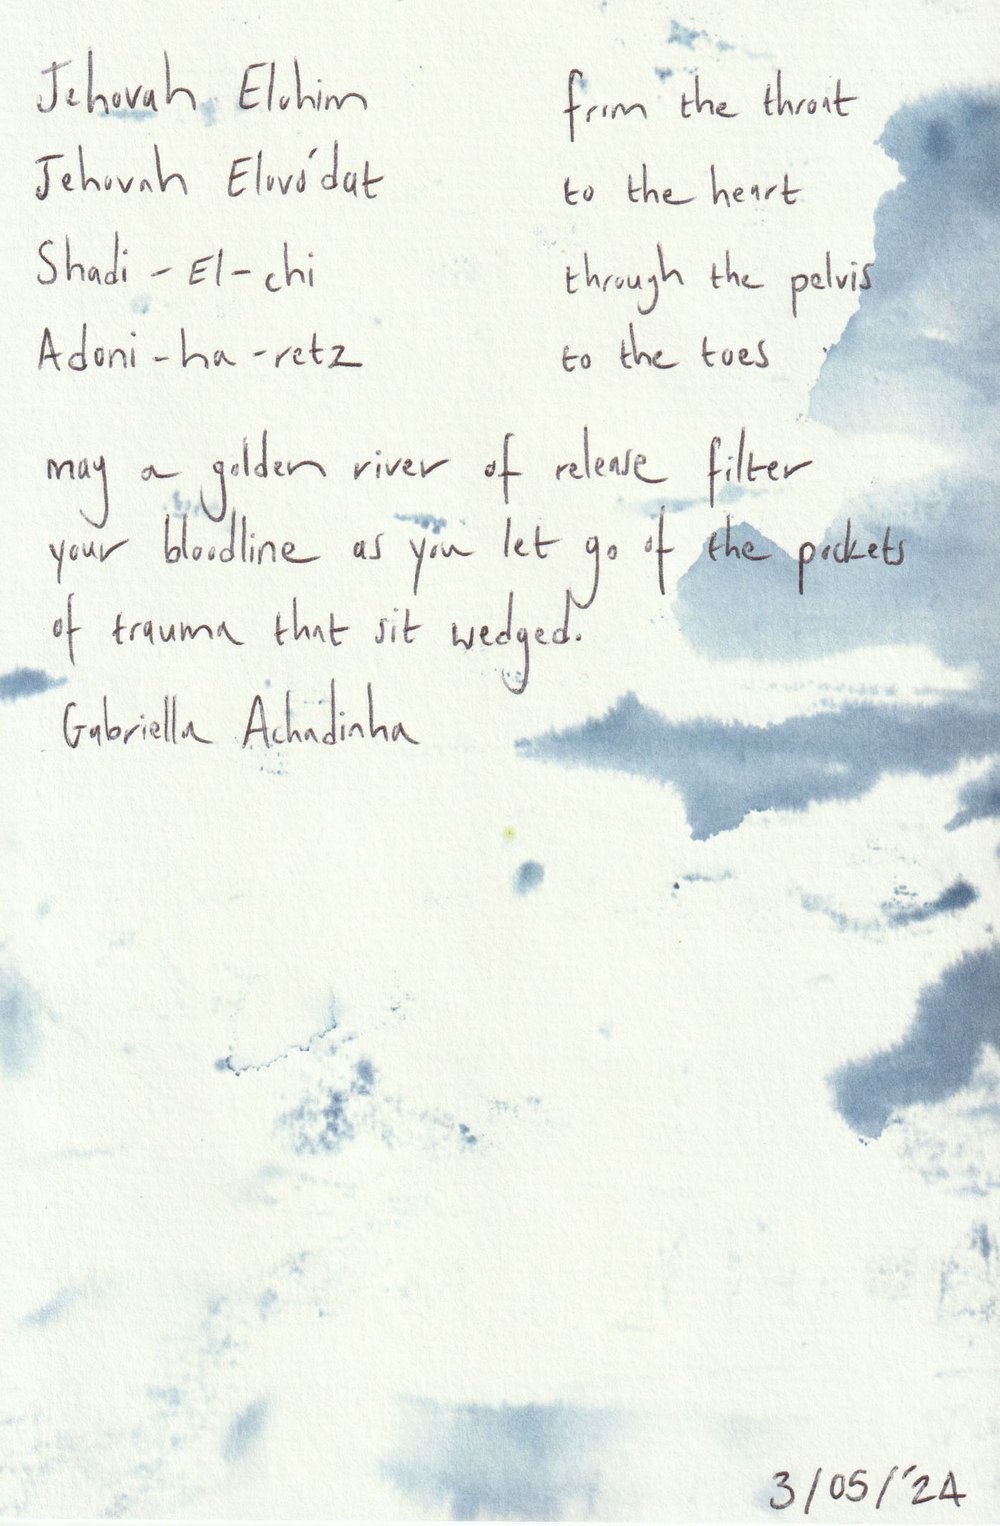 Jehovah Elohim from the throat
Jehovah Elovó'dat to the heart
Shadi - El - chi through the pelvis
Adoni - ha - retz to the toes
may a golden river of release filter
your bloodline as you let go of the pockets
of trauma that sit wedged.
Gabriella Achadinha
3/05/'24